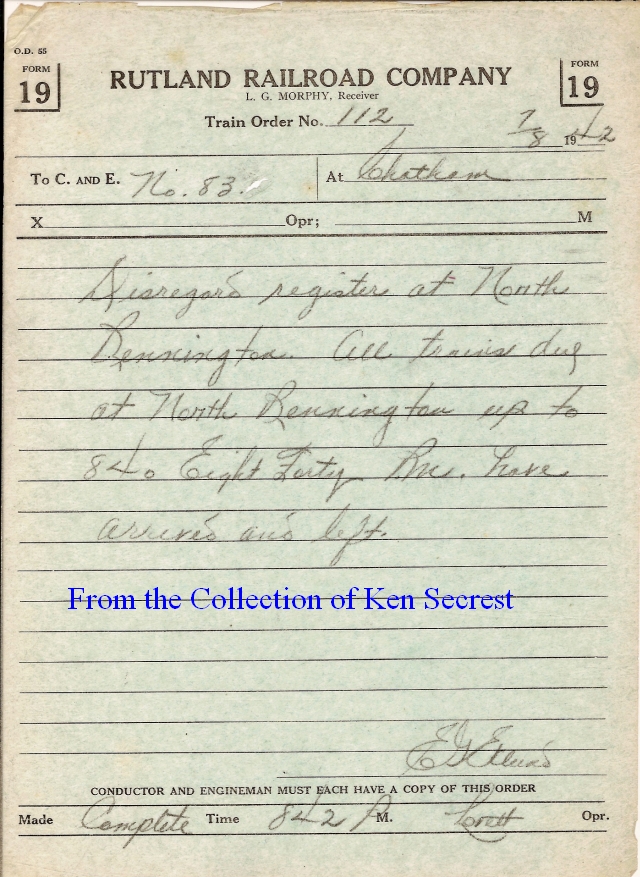 O.D. 55
FORM 19
FORM 19
RUTLAND RAILROAD COMPANY
L. G. MORPHY, Receiver
Train Order No. 112
7/8 1942
To C. AND E. No. 83. At Chatham
X Opr; M
Disregard register at North
Bennington. All trains due
at North Bennington up to
840 Eight Forty Pm. have
arrived and left.
From the Collection of Ken Secrest
CONDUCTOR AND ENGINEMAN MUST EACH HAVE A COPY OF THIS ORDER
Made Complete Time 842 P M. Lovett Opr.